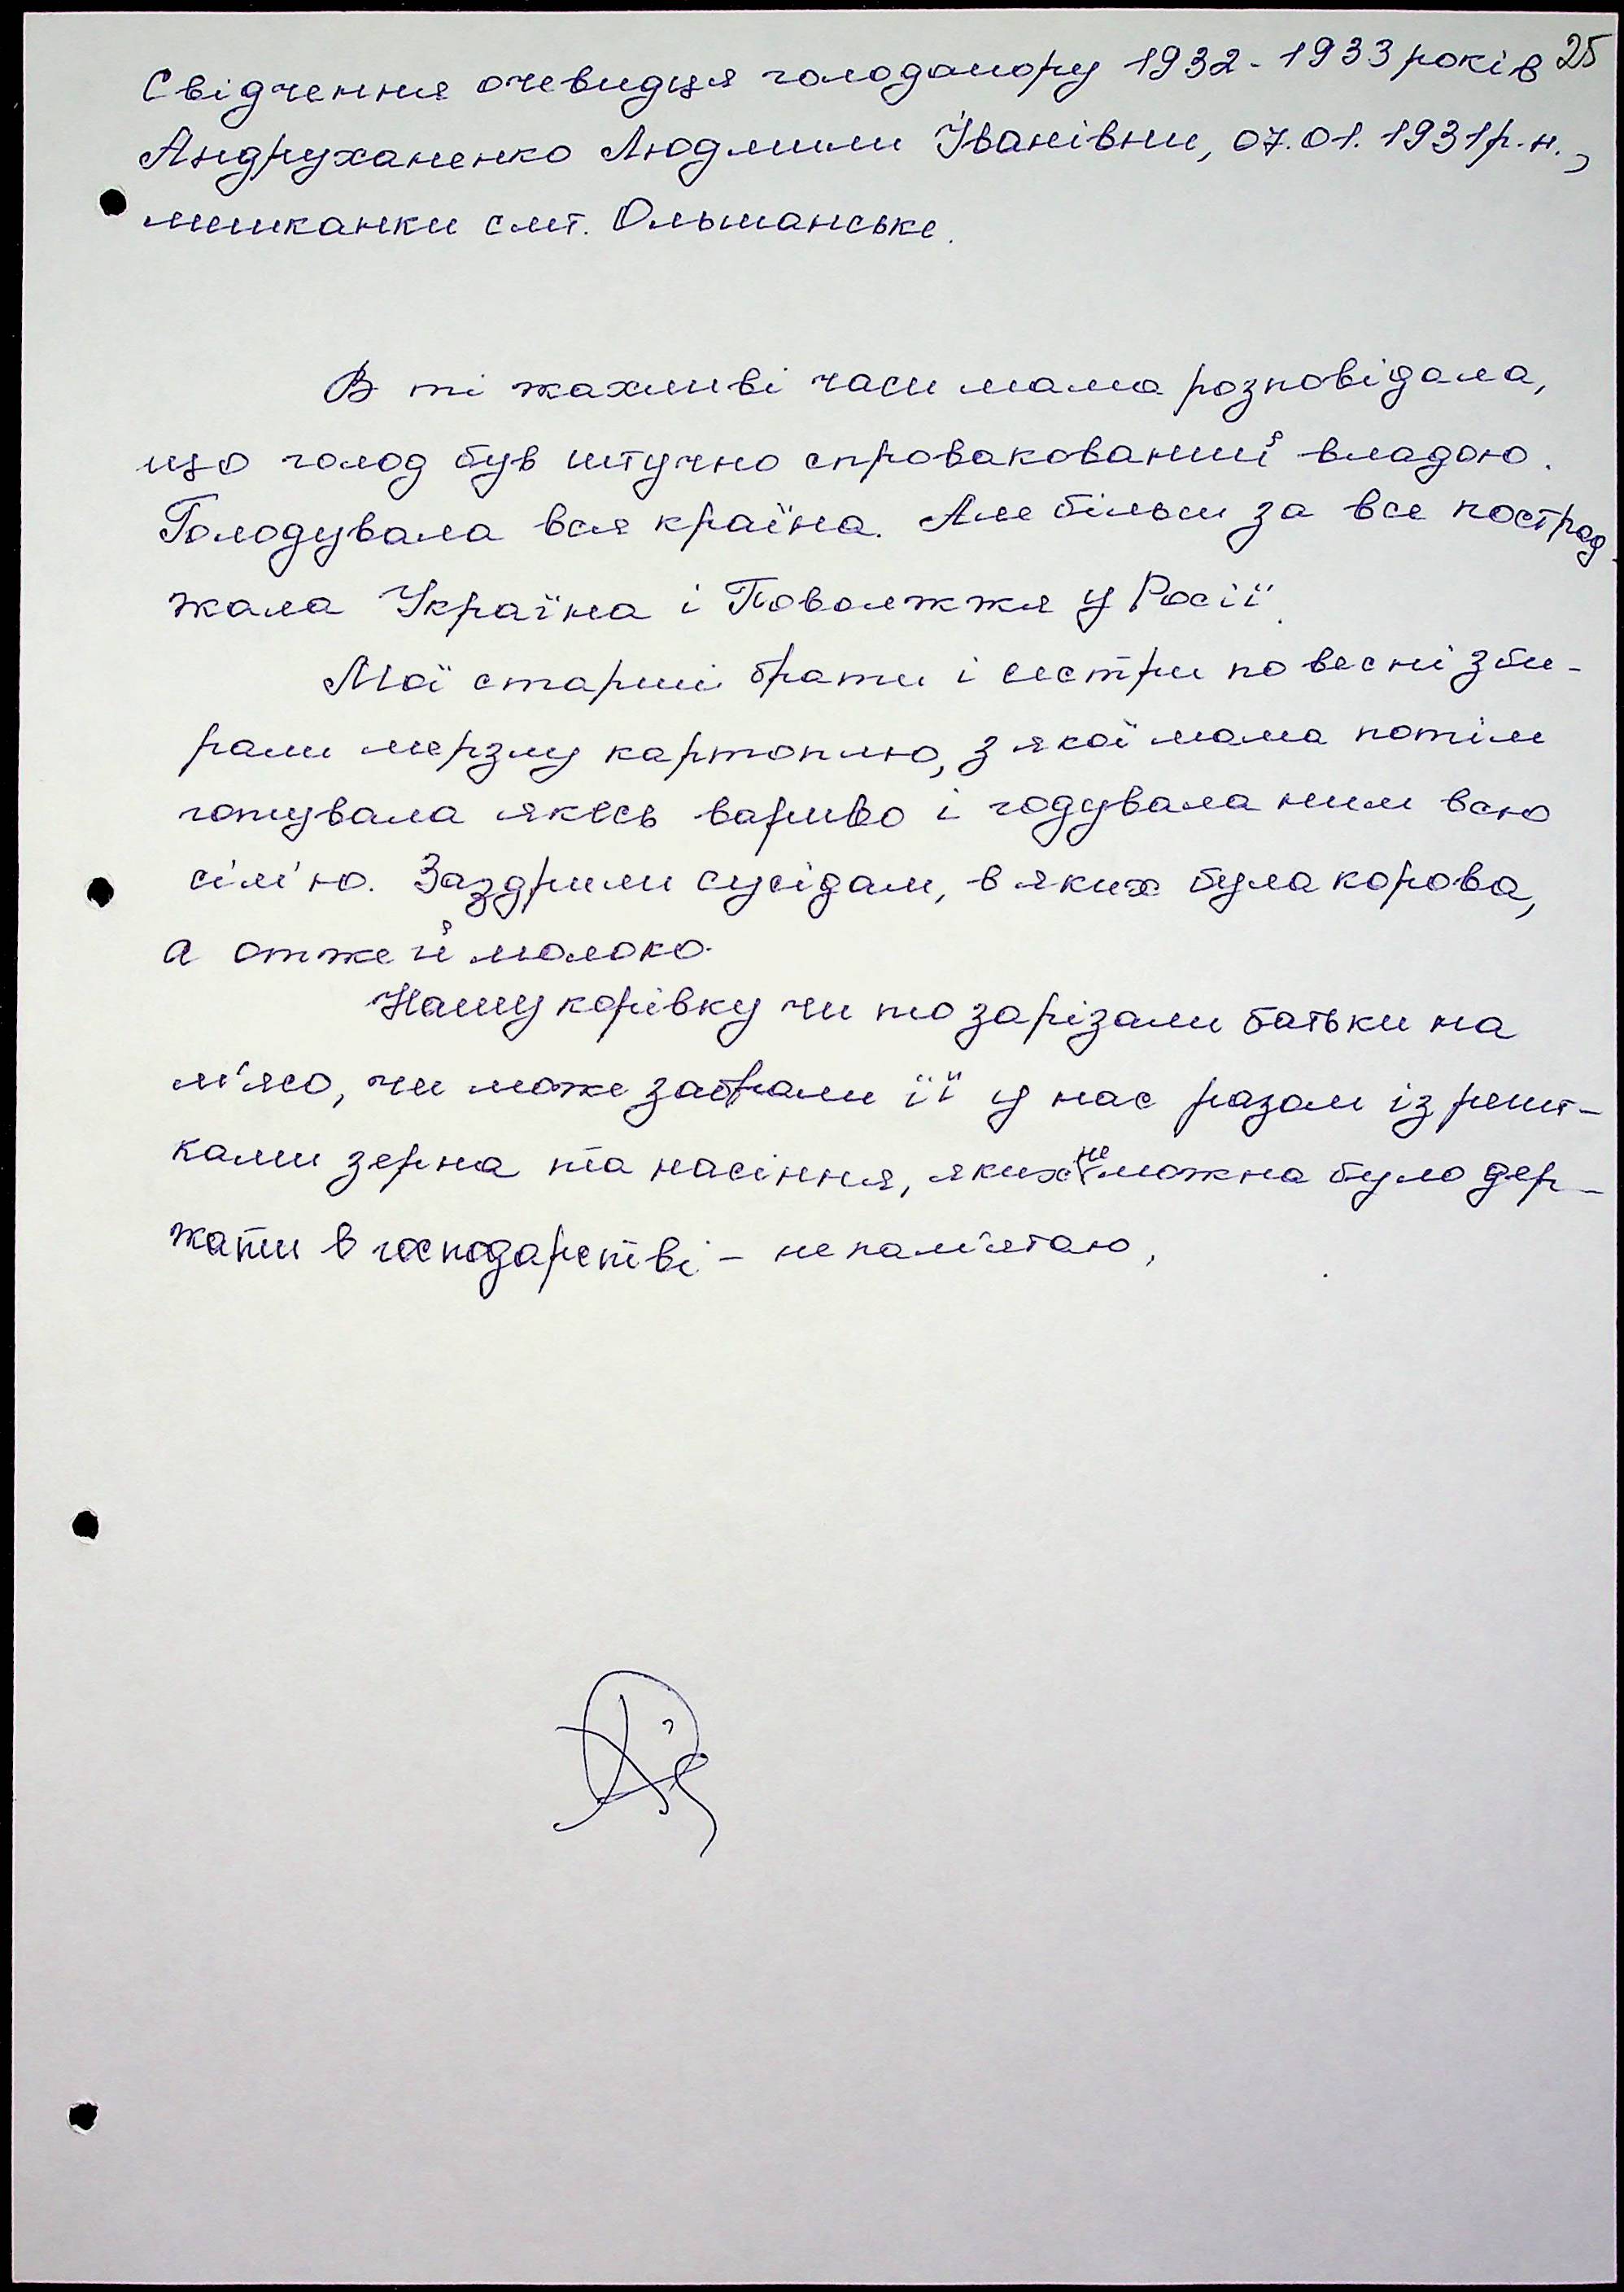 Свідчення очевидця голодомору 1932-1933 років 25
Андруханенко Людмили Іванівни, 07.01.1931р.н.,
мешканки смт. Ольшанське.
В ті жахливі часи мама розповідала,
що голод був штучно спровакований владою.
Голодувала вся країна. Але більш за все постраж
жала Україна і Поволжжя у Росії.
Мої старші брати і сестри по весні зби-
рали мерзлу картоплю, з якої мама потім
готувала якесь вариво і годувала ним всю
сім'ю. Заздрили сусідам, в яких була корова,
а отже й молоко.
Нашу корівку чи то зарізали батьки на
м'ясо, чи може забрали її у нас разом із решт-
ками зерна та насіння, яких не можна було дер-
жати в господарстві - не пам'ятаю,